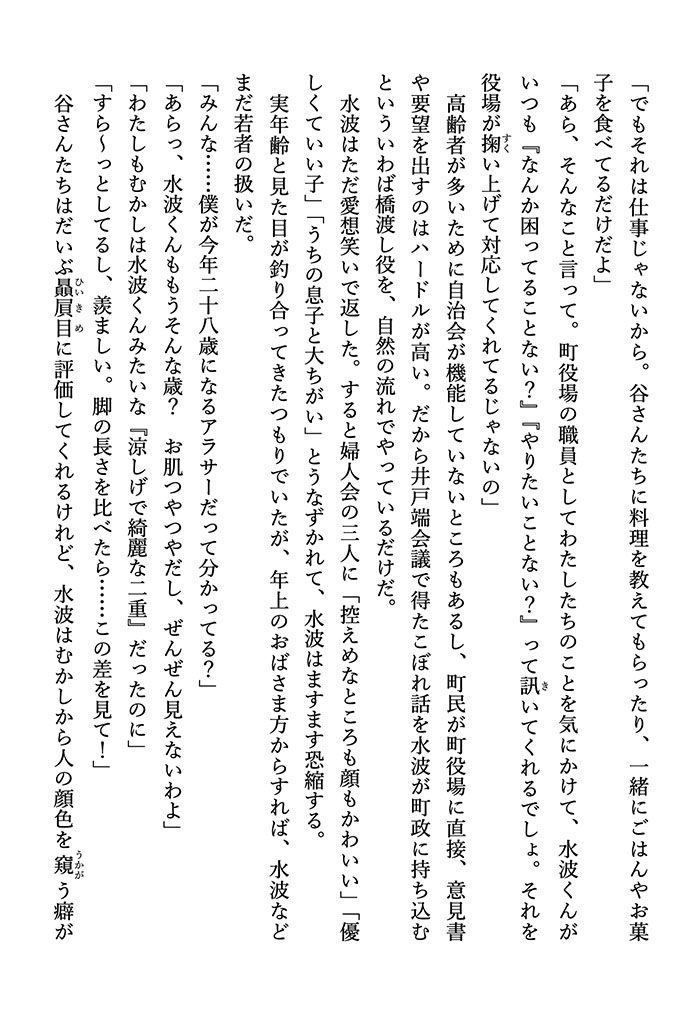 「でもそれは仕事じゃないから。谷さんたちに料理を教えてもらったり、一緒にごはんやお菓
子を食べてるだけだよ」
「あら、そんなこと言って。町役場の職員としてわたしたちのことを気にかけて、水波くんが
いつも『なんか困ってることない？』『やりたいことない？』って訊いてくれるでしょ。それを
役場が掬い上げて対応してくれてるじゃないの」
　高齢者が多いために自治会が機能していないところもあるし、町民が町役場に直接、意見書
や要望を出すのはハードルが高い。だから井戸端会議で得たこぼれ話を水波が町政に持ち込む
といういわば橋渡し役を、自然の流れでやっているだけだ。
　水波はただ愛想笑いで返した。すると婦人会の三人に「控えめなところも顔もかわいい」「優
しくていい子」「うちの息子と大ちがい」とうなずかれて、水波はますます恐縮する。
　実年齢と見た目が釣り合ってきたつもりでいたが、年上のおばさま方からすれば、水波など
まだ若者の扱いだ。
「みんな……僕が今年二十八歳になるアラサーだって分かってる？」
「あらっ、水波くんももうそんな歳？　お肌つやつやだし、ぜんぜん見えないわよ」
「わたしもむかしは水波くんみたいな『涼しげで綺麗な二重』だったのに」
「すら〜っとしてるし、羨ましい。脚の長さを比べたら……この差を見て！」
　谷さんたちはだいぶ贔屓目に評価してくれるけれど、水波はむかしから人の顔色を窺う癖が